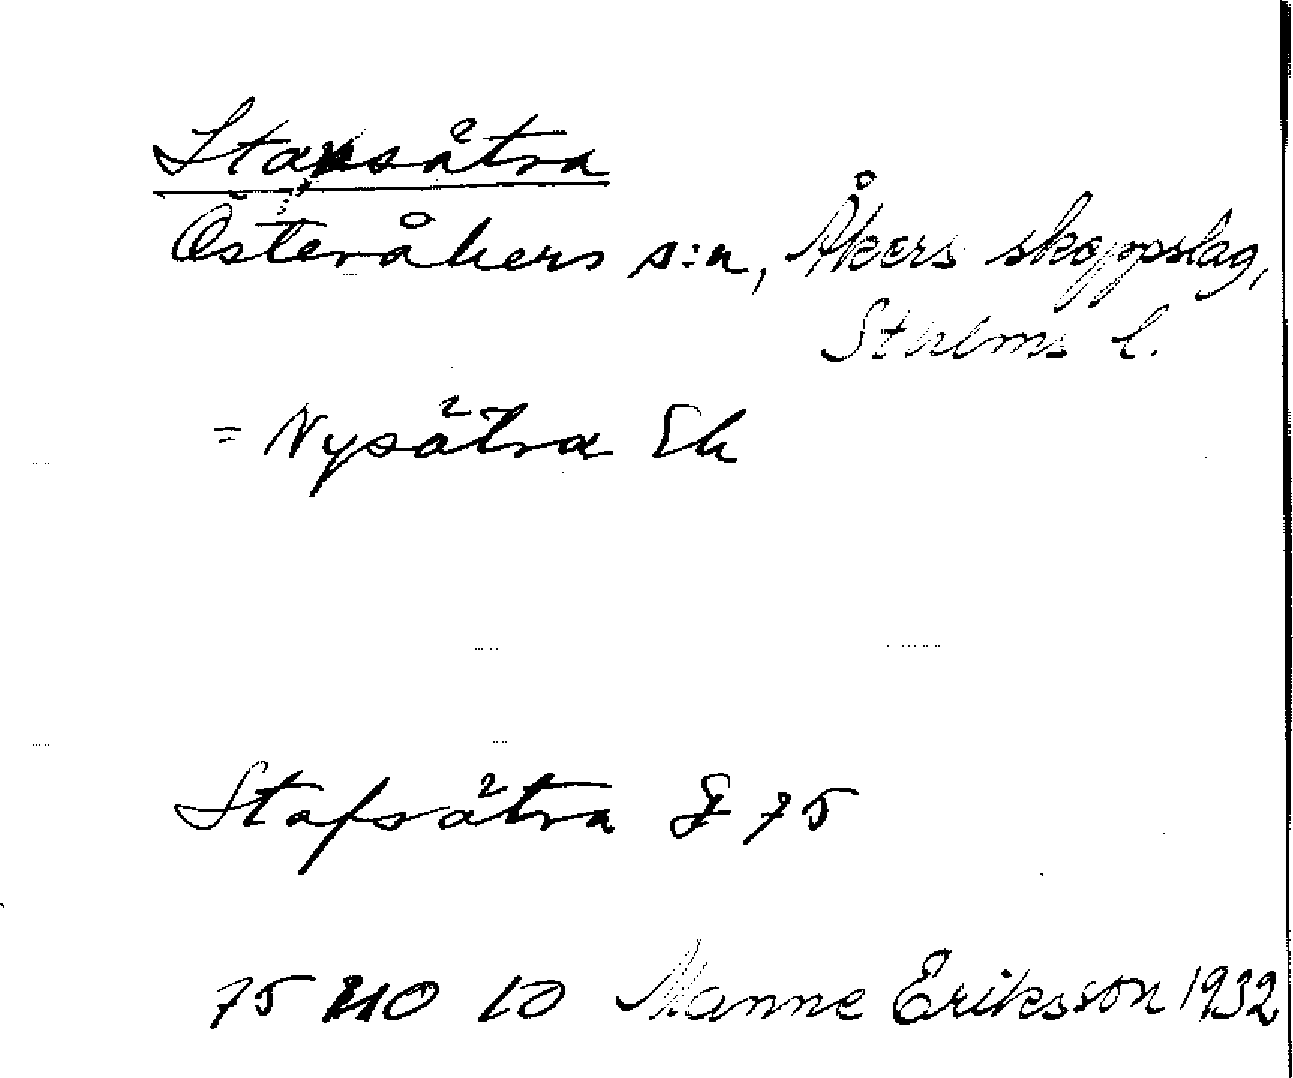 Stavsätra
Österåkers s:n, Åkers skeppslag,
Sthlms l.
= Nysätra Ek
Stafsätra J 75
75 NO 10 Manne Eriksson 1932